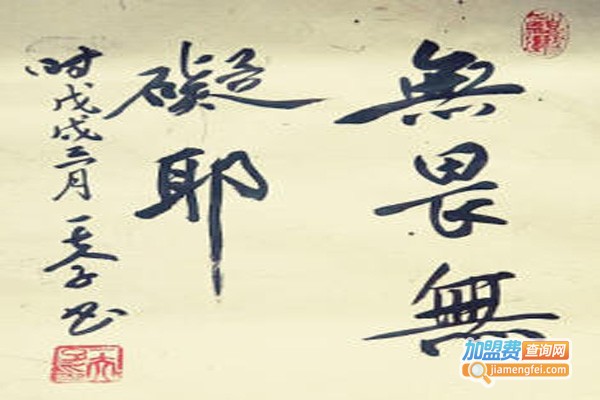 無畏無
礙耶
時戊戌三月
子书
加盟费查询网
jiamengfei.com